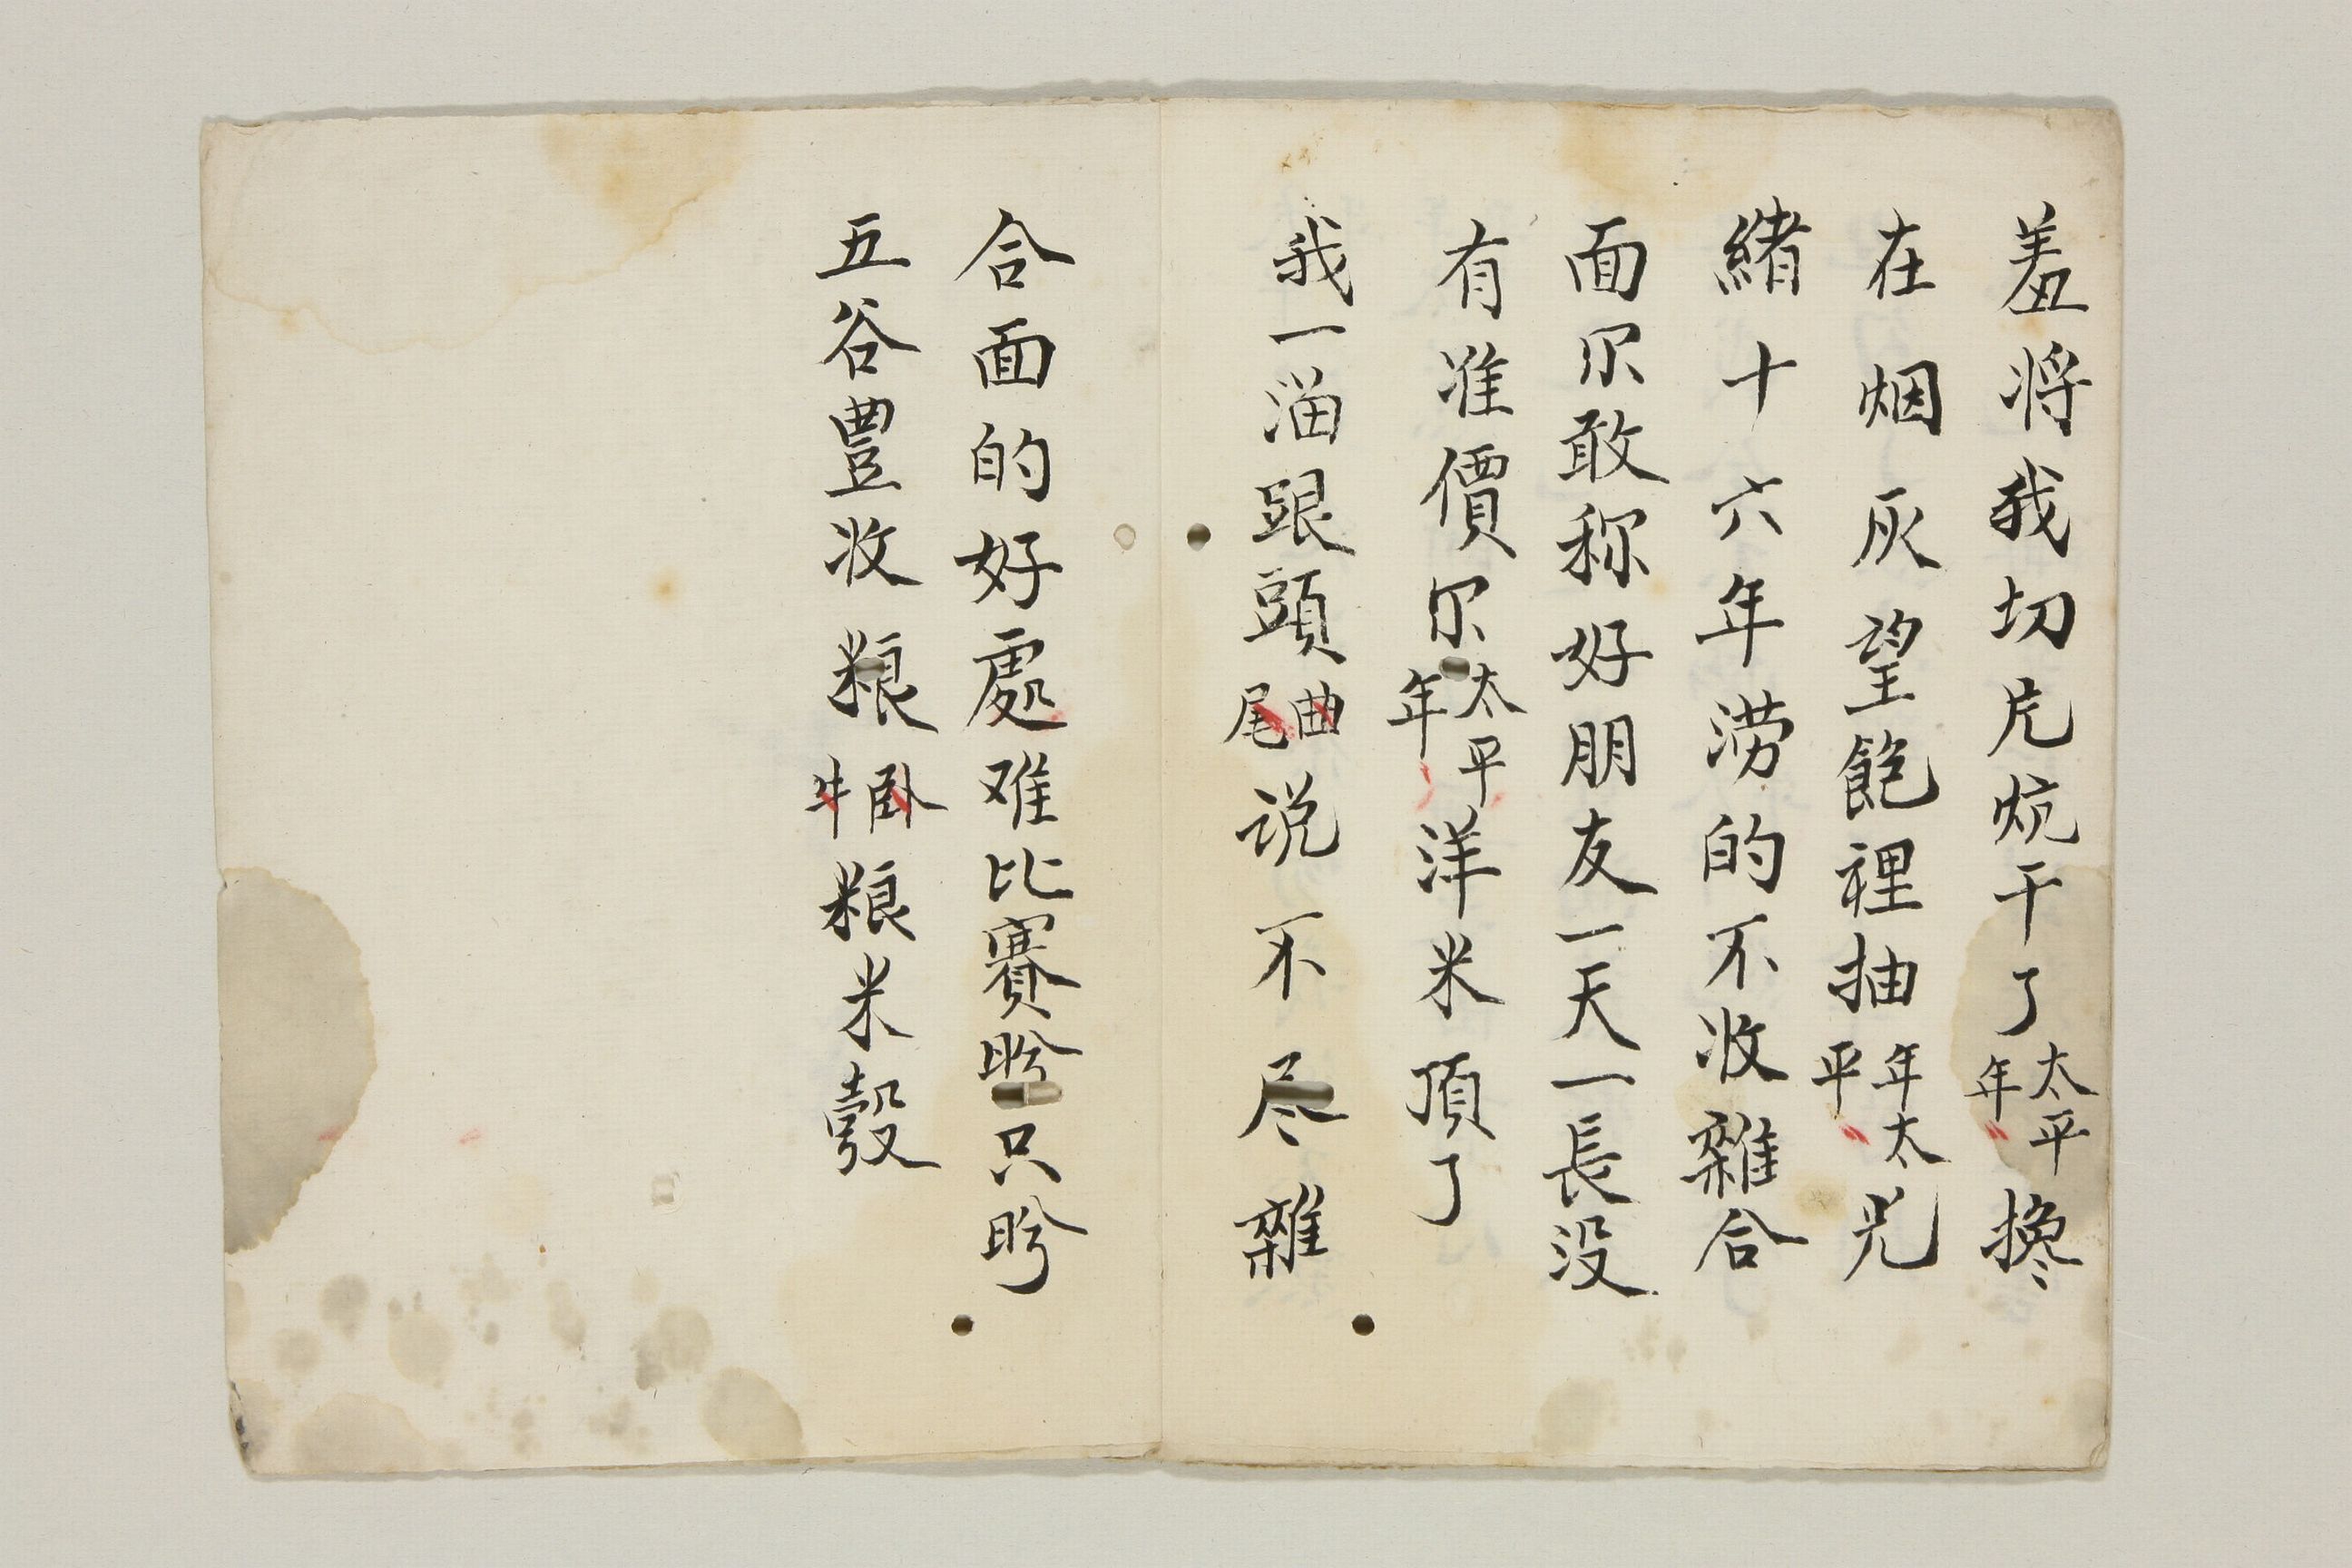 羞将我切片炕干了太平年搀
在烟灰望鲍裡抽年太平咒
緒十六年涝的不收雜合
面尔敢称好朋友一天一長没
有准價尔太平年洋米頂了
我一溜跟頭曲尾说不尽雜
合面的好處难比賽盼只盼
五谷豊收粮卧牛粮米穀